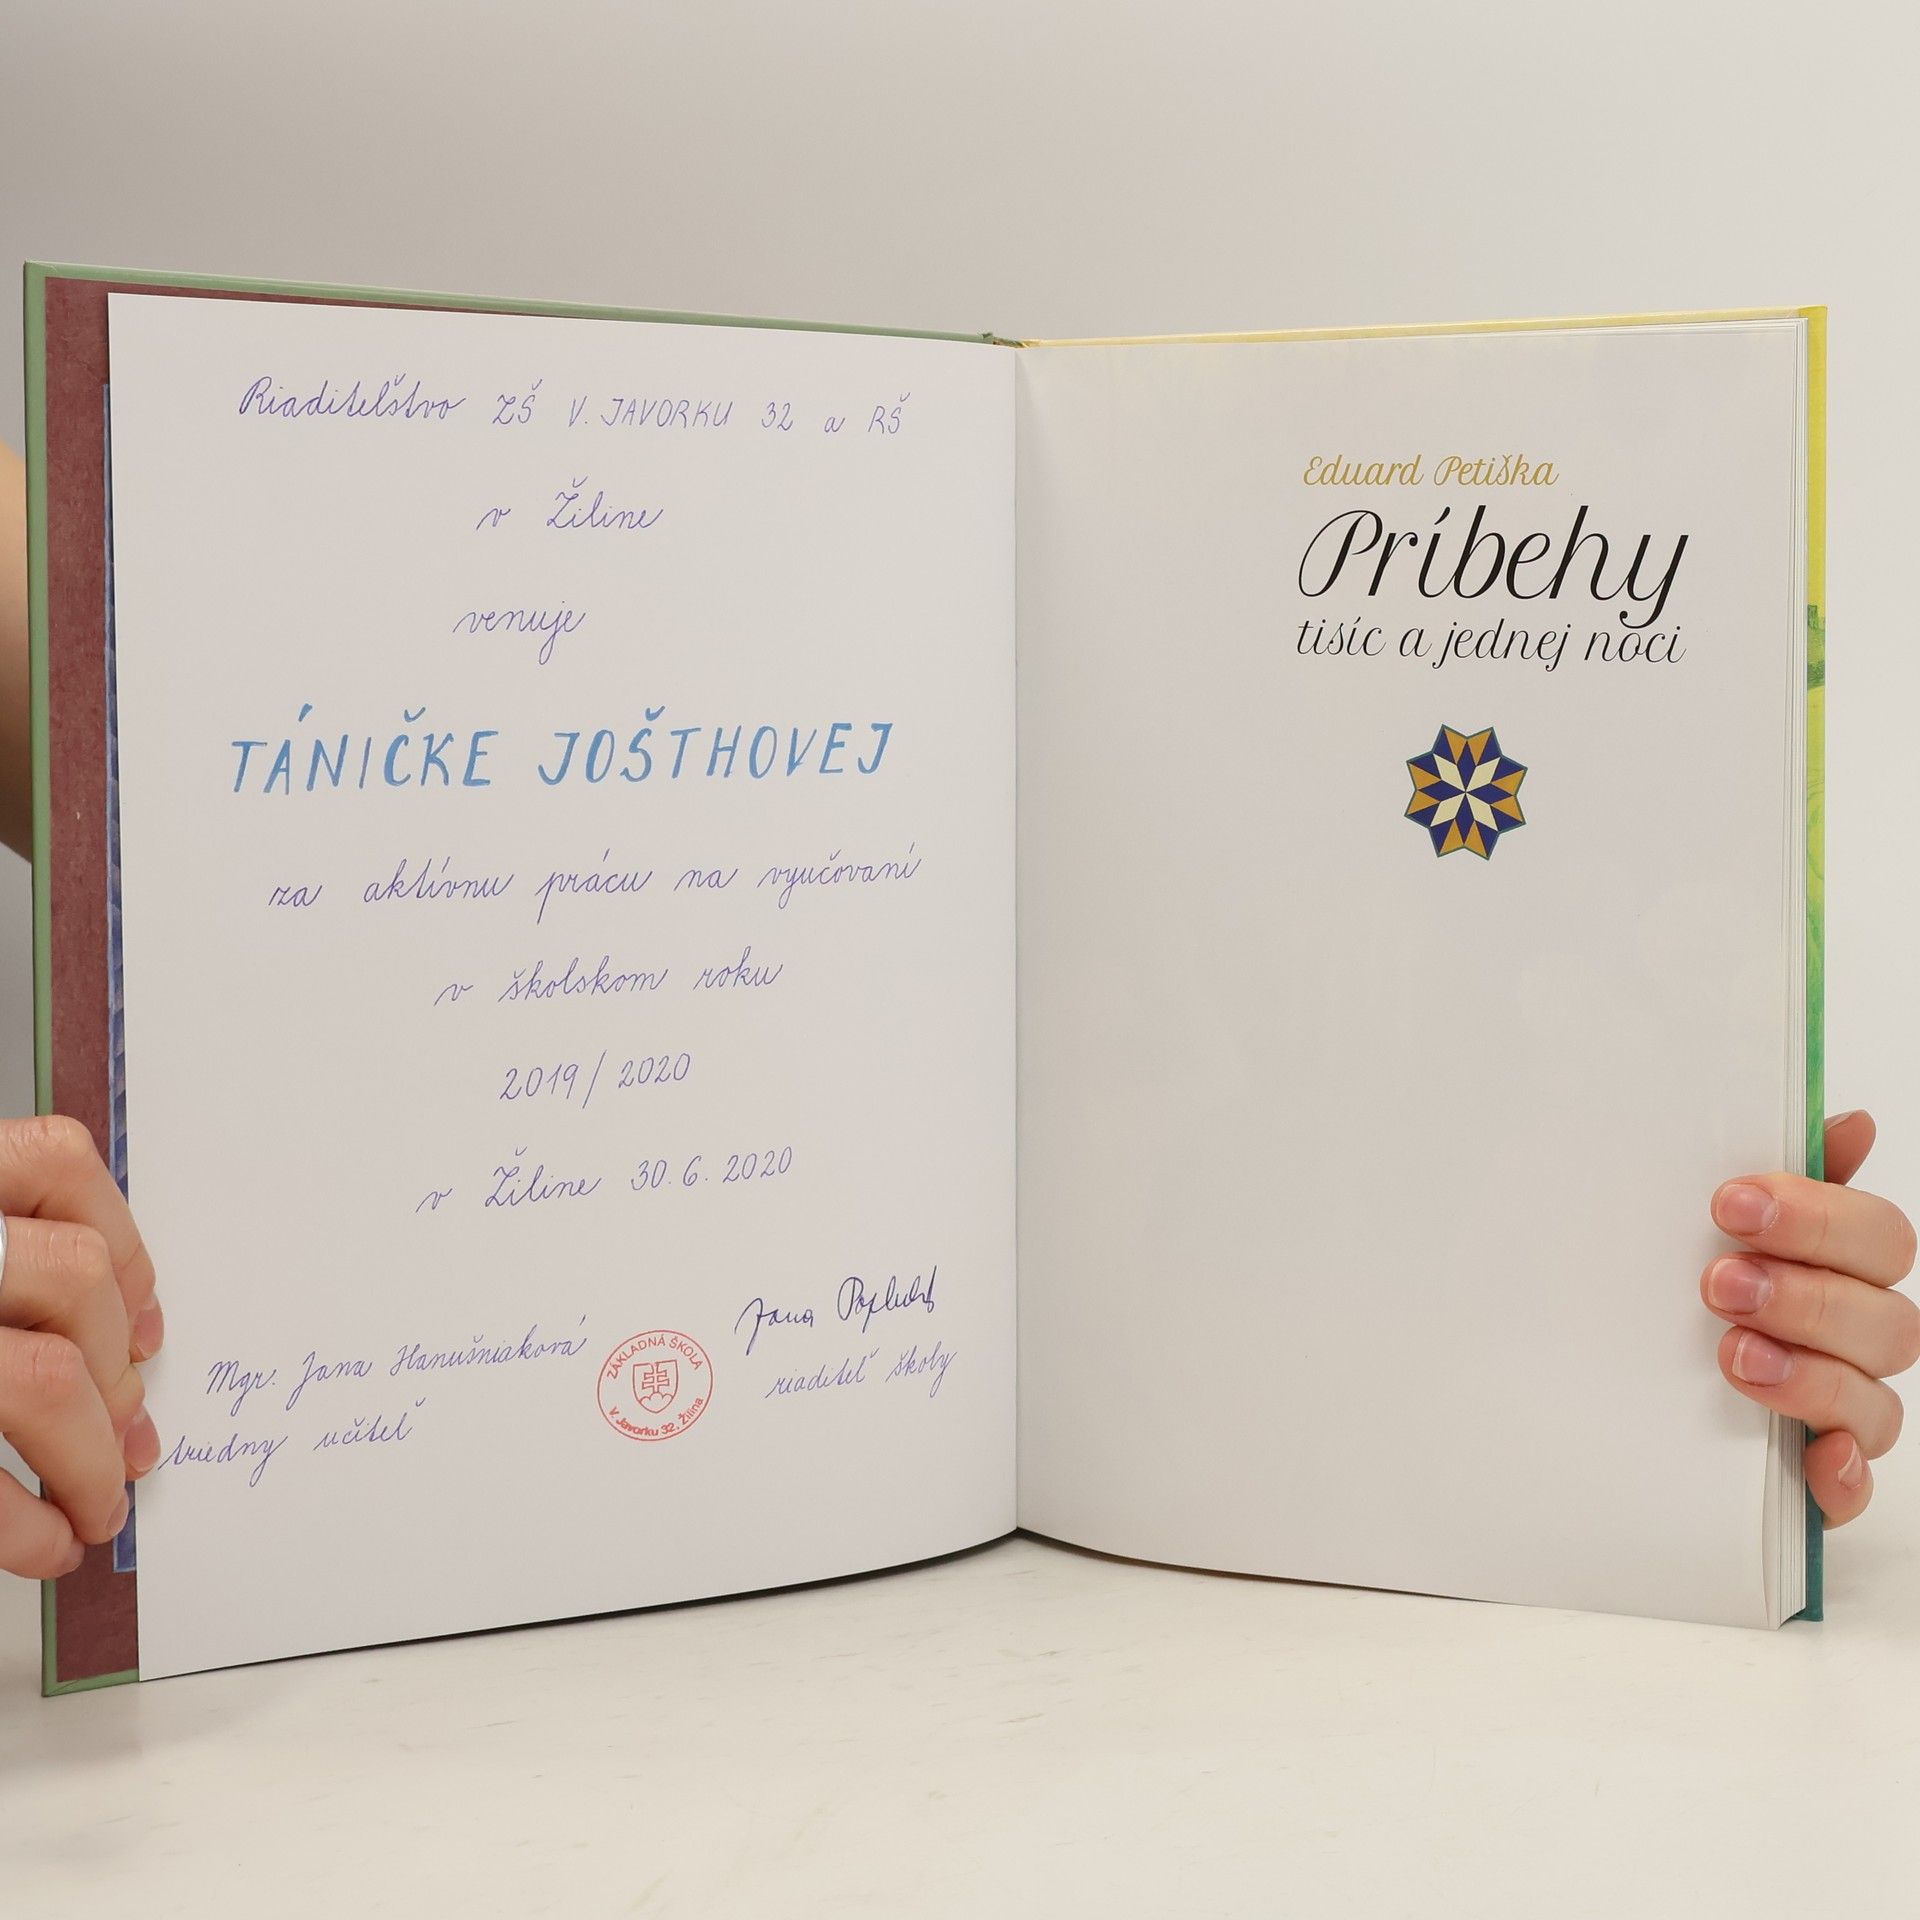 Riaditeľstvo ZŠ V. JAVORKU 32 a RŠ
v Žiline
venuje
TÁNIČKE JOŠTHOVEJ
za aktívnu prácu na vyučovaní
v školskom roku
2019/2020
v Žiline 30.6.2020
Mgr. Jana Hanušniaková
triedny učiteľ
ZÁKLADNÁ ŠKOLA
V. Javorku 32, Žilina
Jana
riaditeľ školy
Eduard Petiška
Príbehy
tisíc a jednej noci